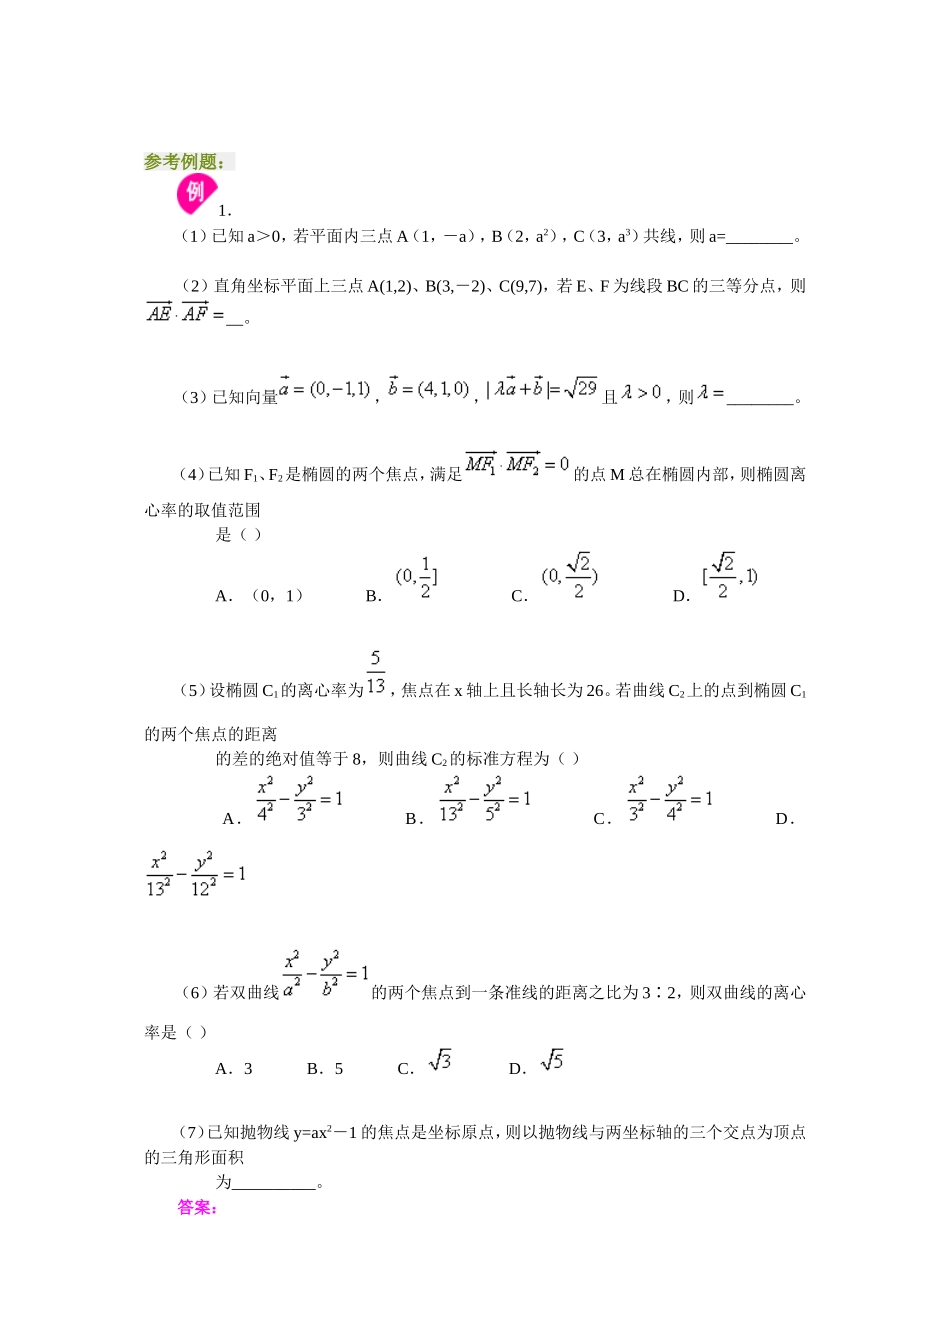 参考例题：
例 1．
（1）已知 a＞0，若平面内三点 A（1，－a），B（2，a²），C（3，a³）共线，则 a=________。
（2）直角坐标平面上三点 A(1,2)、B(3,－2)、C(9,7)，若 E、F 为线段 BC 的三等分点，则
$\overrightarrow{AE}\cdot\overrightarrow{AF}$=__。
（3）已知向量$\vec{a}=(0,-1,1)$，$\vec{b}=(4,1,0)$，$|\lambda\vec{a}+\vec{b}|=\sqrt{29}$ 且 $\lambda>0$，则 $\lambda=$________。
（4）已知 F₁、F₂是椭圆的两个焦点，满足$\overrightarrow{MF_1}\cdot\overrightarrow{MF_2}=0$ 的点 M 总在椭圆内部，则椭圆离
心率的取值范围
是（ ）
A．（0，1） B．$(0,\frac{1}{2}]$ C．$(0,\frac{\sqrt{2}}{2})$ D．$[\frac{\sqrt{2}}{2},1)$
（5）设椭圆 C₁的离心率为$\frac{5}{13}$，焦点在 x 轴上且长轴长为 26。若曲线 C₂上的点到椭圆 C₁
的两个焦点的距离
的差的绝对值等于 8，则曲线 C₂的标准方程为（ ）
A．$\frac{x^2}{4^2}-\frac{y^2}{3^2}=1$ B．$\frac{x^2}{13^2}-\frac{y^2}{5^2}=1$ C．$\frac{x^2}{3^2}-\frac{y^2}{4^2}=1$ D．
$\frac{x^2}{13^2}-\frac{y^2}{12^2}=1$
（6）若双曲线$\frac{x^2}{a^2}-\frac{y^2}{b^2}=1$的两个焦点到一条准线的距离之比为 3∶2，则双曲线的离心
率是（ ）
A．3 B．5 C．$\sqrt{3}$ D．$\sqrt{5}$
（7）已知抛物线 y=ax²－1 的焦点是坐标原点，则以抛物线与两坐标轴的三个交点为顶点
的三角形面积
为__________。
答案：